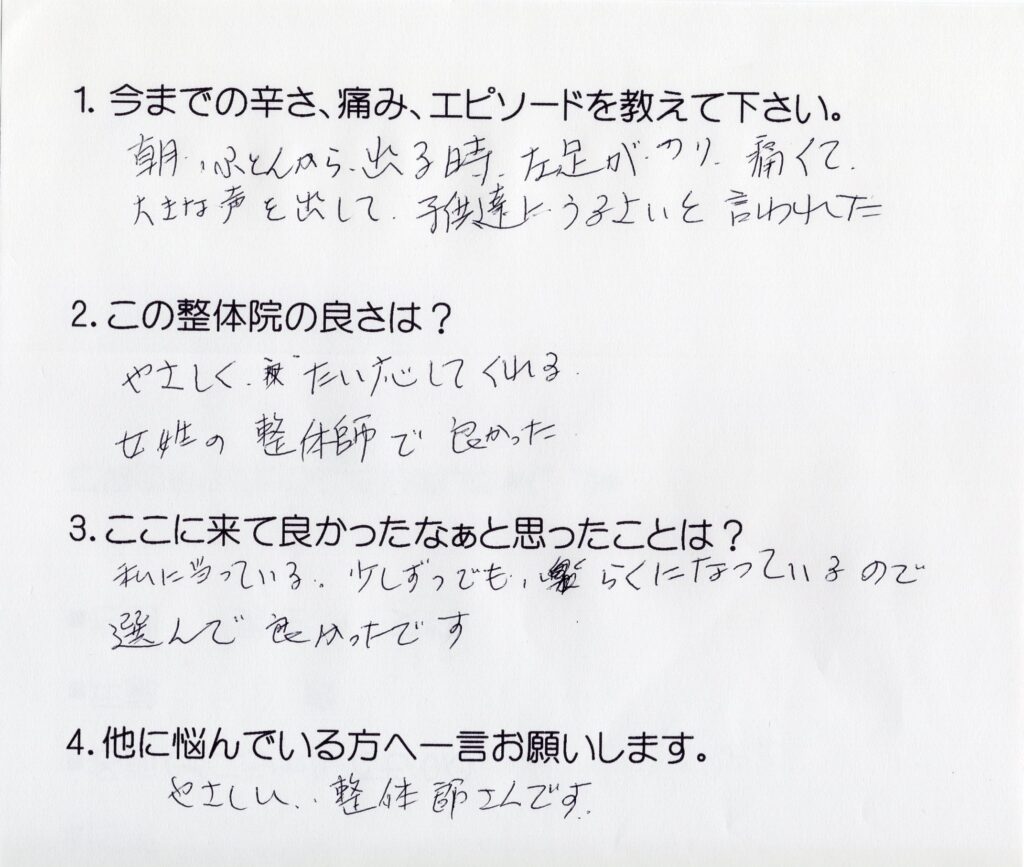 1. 今までの辛さ、痛み、エピソードを教えて下さい。
朝、ふとんから、出る時、左足が、つり、痛くて、
大きな声を出して、子供達に、うるさいと言われた
2. この整体院の良さは？
やさしく、たい応してくれる。
女性の整体師で良かった
3. ここに来て良かったなぁと思ったことは？
私に当っている。少しずつでも、らくになっているので
選んで良かったです
4. 他に悩んでいる方へ一言お願いします。
やさしい、整体師さんです。